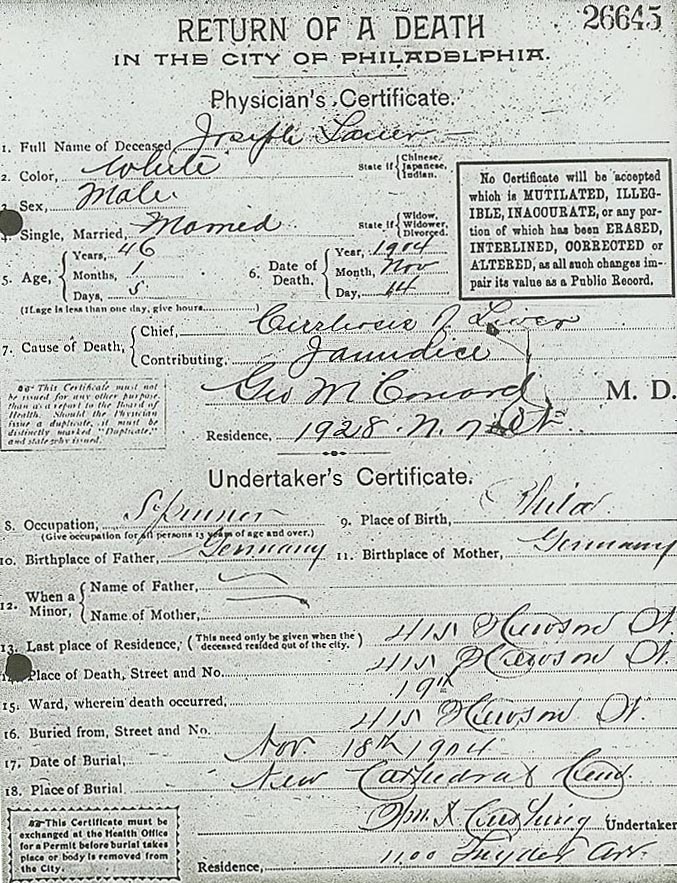 26645
RETURN OF A DEATH
IN THE CITY OF PHILADELPHIA.
Physician's Certificate.
1. Full Name of Deceased, Joseph Lauer
2. Color, White State if { Chinese, Japanese, Indian.
3. Sex, Male
4. Single, Married, Married State if { Widow, Widower, Divorced.
5. Age, { Years, 46
Months, 1
Days, 5
6. Date of Death, { Year, 1904
Month, Nov
Day, 14
(If age is less than one day, give hours.)
No Certificate will be accepted
which is MUTILATED, ILLEG-
IBLE, INACCURATE, or any por-
tion of which has been ERASED,
INTERLINED, CORRECTED or
ALTERED, as all such changes im-
pair its value as a Public Record.
7. Cause of Death, { Chief, Cirrhosis of Liver
Contributing, Jaundice
This Certificate must not
be issued for any other purpose
than as a report to the Board of
Health. Should the Physician
issue a duplicate, it must be
distinctly marked "Duplicate,"
and state why issued.
Geo M M. D.
Residence, 1928 N. St
Undertaker's Certificate.
8. Occupation, Spinner
(Give occupation for all persons 13 years of age and over.)
9. Place of Birth, Phila
10. Birthplace of Father, Germany
11. Birthplace of Mother, Germany
12. When a Minor, { Name of Father,
Name of Mother,
13. Last place of Residence, (This need only be given when the deceased resided out of the city.) 415 Hewson St.
14. Place of Death, Street and No. 415 Hewson St.
15. Ward, wherein death occurred, 19th
16. Buried from, Street and No. 415 Hewson St.
17. Date of Burial, Nov. 18th 1904
18. Place of Burial New Cathedral Cem.
This Certificate must be
exchanged at the Health Office
for a Permit before burial takes
place or body is removed from
the City.
Wm Cushing Undertaker
Residence, 1100 Snyder Av.